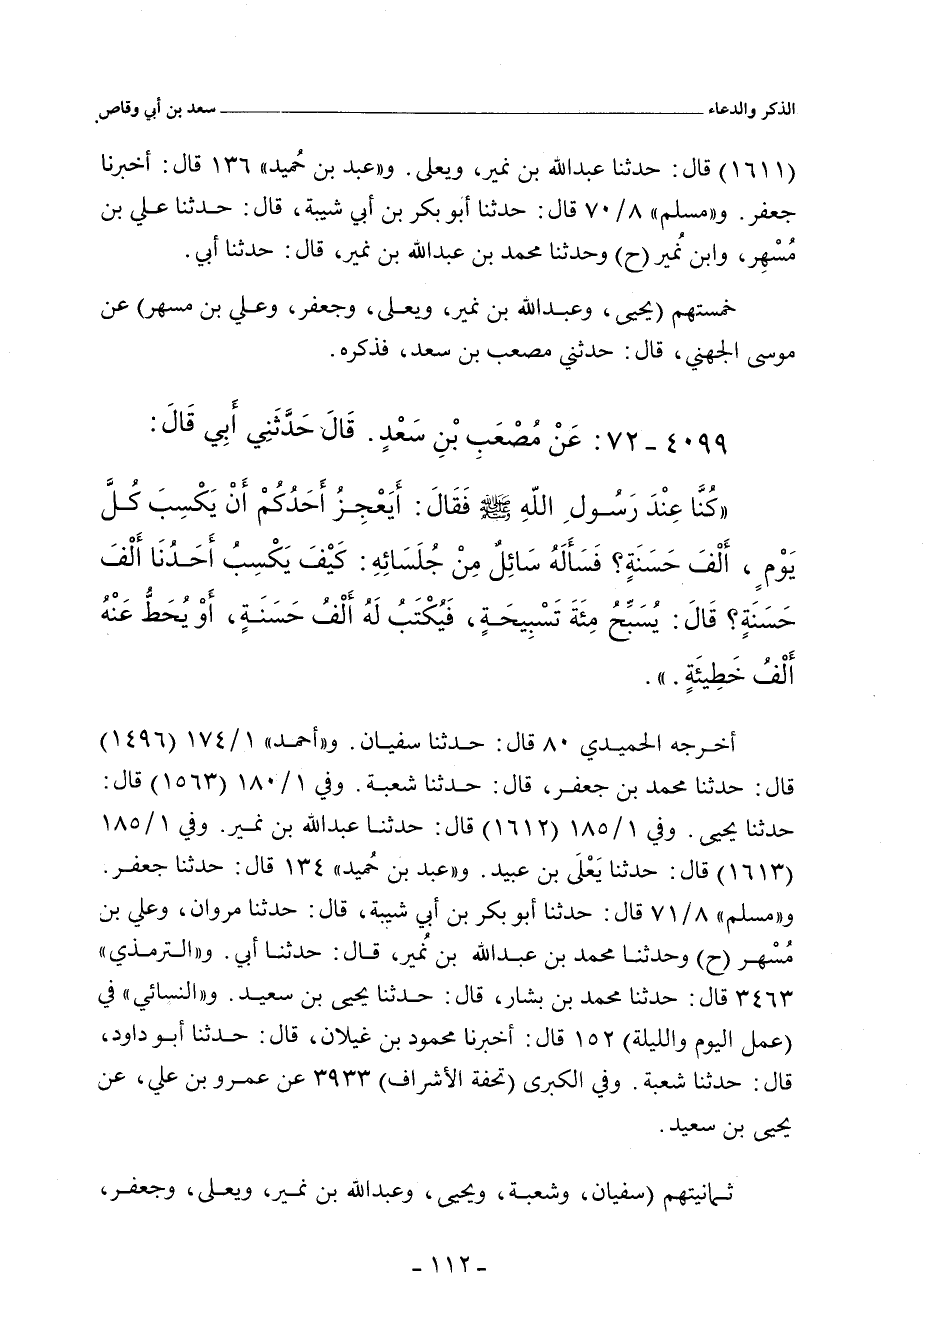 الذكر والدعاء ـــــــــــــــ سعد بن أبي وقاص
(١٦١١) قال: حدثنا عبدالله بن نمير، ويعلى. و«عبد بن حُميد» ١٣٦ قال: أخبرنا
جعفر. و«مسلم» ٧٠/٨ قال: حدثنا أبو بكر بن أبي شيبة، قال: حدثنا علي بن
مُسْهِر، وابن نُمير (ح) وحدثنا محمد بن عبدالله بن نمير، قال: حدثنا أبي.
خمستهم (يحيى، وعبدالله بن نمير، ويعلى، وجعفر، وعلي بن مسهر) عن
موسى الجهني، قال: حدثني مصعب بن سعد، فذكره.
٤٠٩٩ ـ ٧٢: عَنْ مُصْعَبِ بْنِ سَعْدٍ. قَالَ حَدَّثَنِي أَبِي قَالَ:
«كُنَّا عِنْدَ رَسُولِ اللّهِ ﷺ فَقَالَ: أَيَعْجِزُ أَحَدُكُمْ أَنْ يَكْسِبَ كُلَّ
يَوْمٍ، أَلْفَ حَسَنَةٍ؟ فَسَأَلَهُ سَائِلٌ مِنْ جُلَسَائِهِ: كَيْفَ يَكْسِبُ أَحَدُنَا أَلْفَ
حَسَنَةٍ؟ قَالَ: يُسَبِّحُ مِئَةَ تَسْبِيحَةٍ، فَيُكْتَبُ لَهُ أَلْفُ حَسَنَةٍ، أَوْ يُحَطُّ عَنْهُ
أَلْفُ خَطِيئَةٍ.».
أخرجه الحميدي ٨٠ قال: حدثنا سفيان. و«أحمد» ١٧٤/١ (١٤٩٦)
قال: حدثنا محمد بن جعفر، قال: حدثنا شعبة. وفي ١٨٠/١ (١٥٦٣) قال:
حدثنا يحيى. وفي ١٨٥/١ (١٦١٢) قال: حدثنا عبدالله بن نمير. وفي ١٨٥/١
(١٦١٣) قال: حدثنا يَعْلَى بن عبيد. و«عبد بن حُميد» ١٣٤ قال: حدثنا جعفر.
و«مسلم» ٧١/٨ قال: حدثنا أبو بكر بن أبي شيبة، قال: حدثنا مروان، وعلي بن
مُسْهِر (ح) وحدثنا محمد بن عبدالله بن نُمير، قال: حدثنا أبي. و«الترمذي»
٣٤٦٣ قال: حدثنا محمد بن بشار، قال: حدثنا يحيى بن سعيد. و«النسائي» في
(عمل اليوم والليلة) ١٥٢ قال: أخبرنا محمود بن غيلان، قال: حدثنا أبو داود،
قال: حدثنا شعبة. وفي الكبرى (تحفة الأشراف) ٣٩٣٣ عن عمرو بن علي، عن
يحيى بن سعيد.
ثمانيتهم (سفيان، وشعبة، ويحيى، وعبدالله بن نمير، ويعلى، وجعفر،
- ١١٢ -